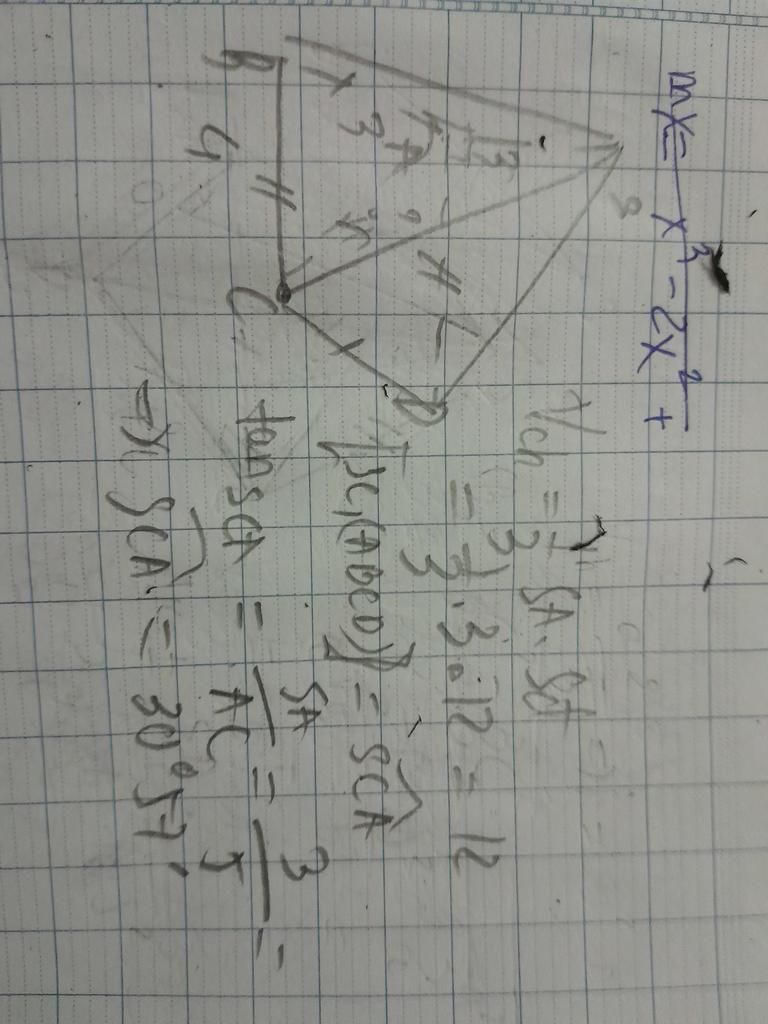 mx = x³ - 2x² +
S
A
3
B
4
C
D
Vch = 1/3 SA. Sđ =
= 1/3 . 3 . 12 = 12
[SC, (ABCD)] = SCA
tan SCA = SA/AC = 3/5 =
SCA = 30°57'